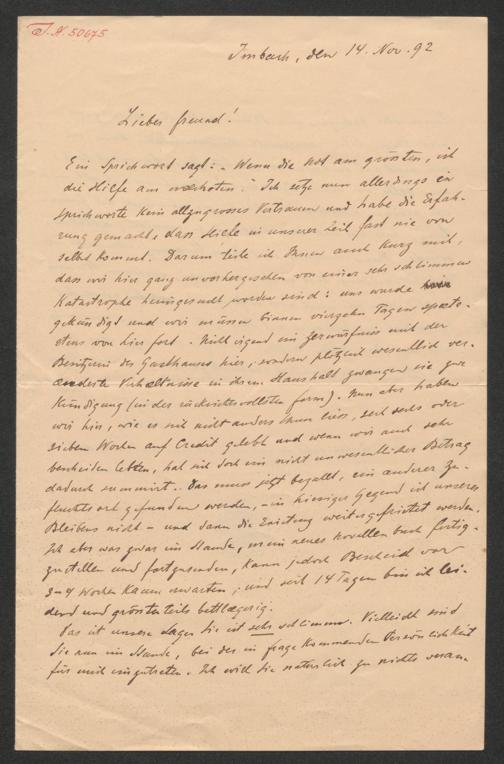 I.N. 50675
Imbach, den 14. Nov. 92
Lieber Freund!
Ein Sprichwort sagt: „Wenn die Not am grössten, ist
die Hilfe am nächsten." Ich setze nun allerdings in
Sprichworte kein allzugrosses Vertrauen und habe die Erfah-
rung gemacht, dass Hilfe in unserer Zeit fast nie von
selbst kommt. Darum teile ich Ihnen auch kurz mit,
dass wir hier ganz unvorhergesehen von einer sehr schlimmen
Katastrophe heimgesucht worden sind: uns wurde
gekündigt und wir müssen binnen vierzehn Tagen späte-
stens von hier fort. Nicht irgend ein Zerwürfniss mit der
Besitzerin des Gasthauses hier, sondern plötzlich wesentlich ver-
änderte Verhältnisse in ihrem Haushalt zwangen sie zur
Kündigung (in der rücksichtsvollsten Form). Nun aber haben
wir hier, wie es sich nicht anders thun liess, seit sechs oder
sieben Wochen auf Credit gelebt und wenn wir auch sehr
bescheiden lebten, hat sich doch ein nicht unwesentlicher Betrag
dadurch summirt. Das muss jetzt bezahlt, ein anderer Zu-
fluchtsort gefunden werden, – in hiesiger Gegend ist unseres
Bleibens nicht – und dann die Existenz weitergefristet werden.
Ich aber was zwar im Stande, mein neues Novellenbuch fertig-
zustellen und fortzusenden, kann jedoch Bescheid vor
3-4 Wochen kaum erwarten; und seit 14 Tagen bin ich lei-
dend und grösstenteils bettlägerig.
Das ist unsere Lage. Sie ist sehr schlimm. Vielleicht sind
Sie nun im Stande, bei der in Frage kommenden Persönlichkeit
für mich einzutreten. Ich will Sie natürlich zu nichts veran-